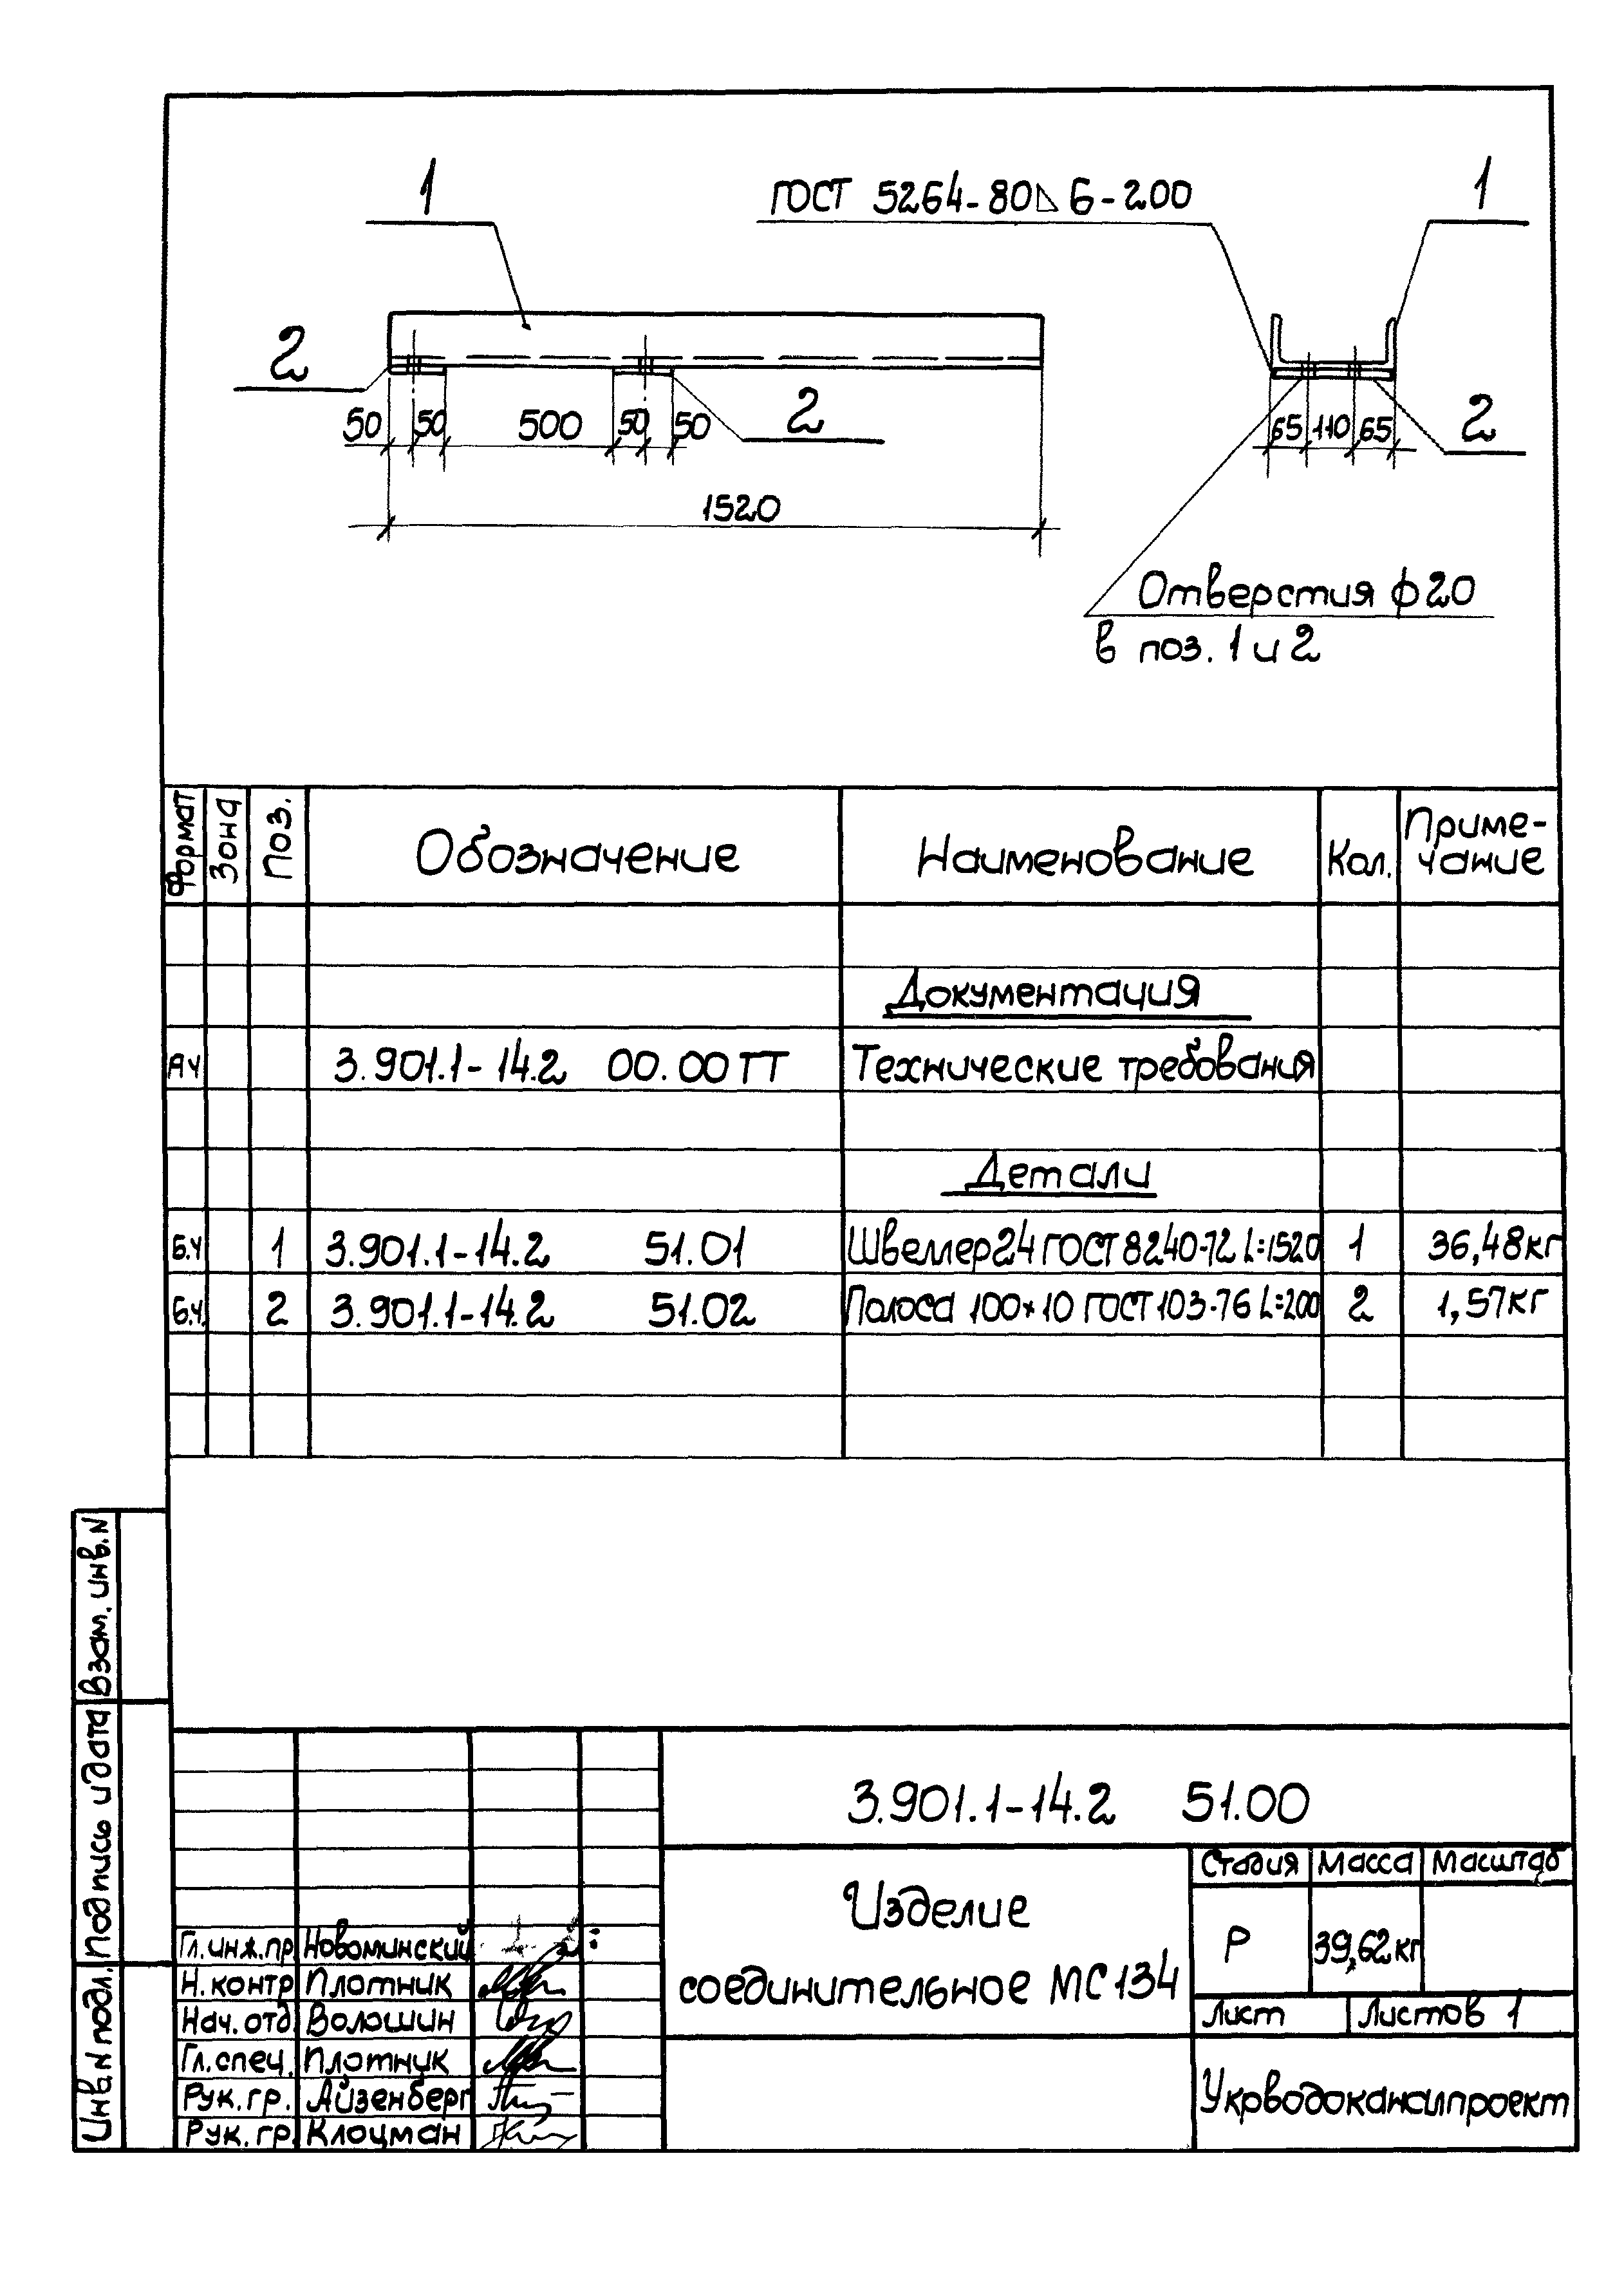 1
ГОСТ 5264-80 ◺ 6-200
1
2
2
2
50 50 500 50 50
65 110 65
1520
Отверстия ф20
в поз. 1 и 2
Формат Зона Поз. Обозначение Наименование Кол. Приме-
чание
Документация
А4 3.901.1-14.2 00.00ТТ Технические требования
Детали
Б.Ч 1 3.901.1-14.2 51.01 Швеллер 24 ГОСТ 8240-72 L=1520 1 36,48кг
Б.Ч. 2 3.901.1-14.2 51.02 Полоса 100×10 ГОСТ 103-76 L=200 2 1,57кг
Взам. инв. N
Подпись и дата
Инв. N подл.
3.901.1-14.2 51.00
Изделие
соединительное МС 134
Стадия Масса Масштаб
Р 39,62кг
Лист Листов 1
Укрводоканалпроект
Гл. инж. пр Новоминский
Н. контр Плотник
Нач. отд. Волошин
Гл. спец. Плотник
Рук. гр. Айзенберг
Рук. гр. Клоцман